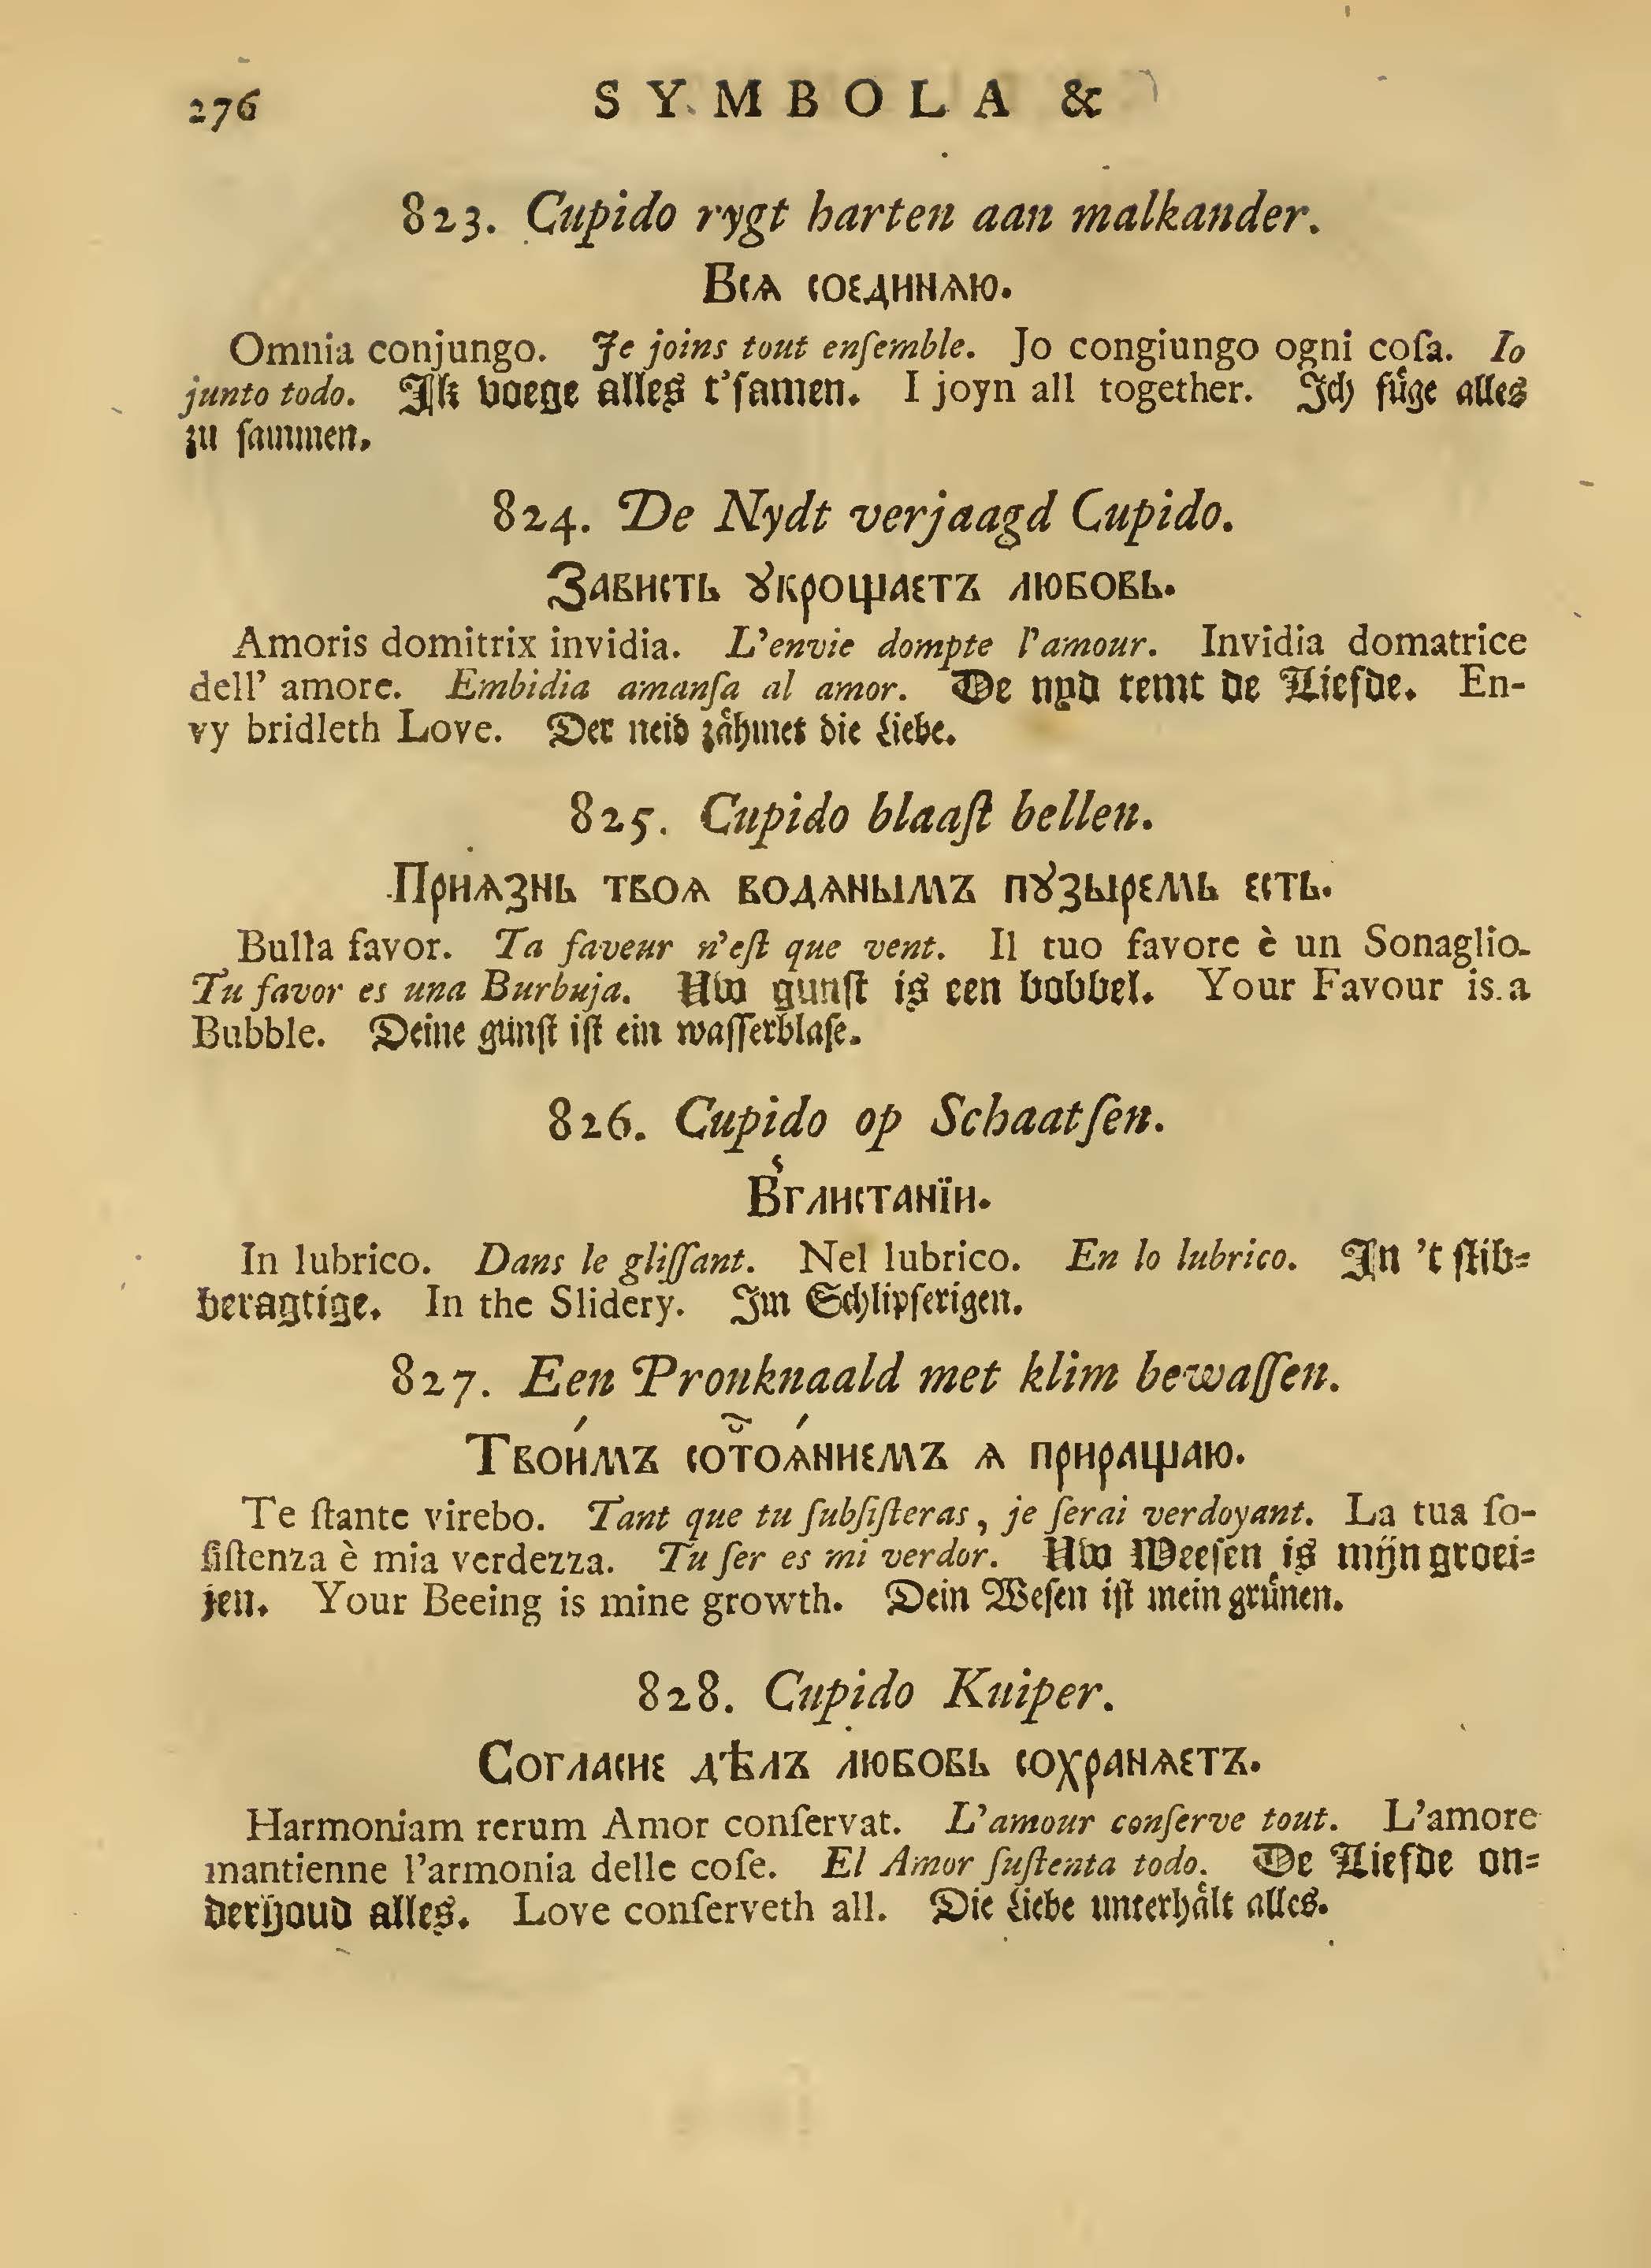 276 SYMBOLA &
823. Cupido rygt harten aan malkander.
Всѧ соединѧю.
Omnia conjungo. Je joins tout enſemble. Jo congiungo ogni coſa. Io
junto todo. Ik voege alles t'ſamen. I joyn all together. Ich fuͤge alles
zu ſammen.
824. De Nydt verjaagd Cupido.
Зависть ꙋкрощаетъ любовь.
Amoris domitrix invidia. L'envie dompte l'amour. Invidia domatrice
dell' amore. Embidia amanſa al amor. De nyd temt de Liefde. En-
vy bridleth Love. Der neid zaͤhmet die Liebe.
825. Cupido blaaſt bellen.
Приѧзнь твоѧ водѧнымъ пꙋзыремь есть.
Bulla favor. Ta faveur n'eſt que vent. Il tuo favore è un Sonaglio.
Tu favor es una Burbuja. Uw gunſt is een bobbel. Your Favour is a
Bubble. Deine gunſt iſt ein waſſerblaſe.
826. Cupido op Schaatſen.
Вглистанїи.
In lubrico. Dans le gliſſant. Nel lubrico. En lo lubrico. In 't ſlib-
beragtige. In the Slidery. Im Schlipferigen.
827. Een Pronknaald met klim bewaſſen.
Твои́мъ сотоѧ́ниемъ ѧ приращаю.
Te ſtante virebo. Tant que tu ſubſiſteras, je ſerai verdoyant. La tua ſo-
ſiſtenza è mia verdezza. Tu ſer es mi verdor. Uw Weeſen is mijn groei-
jen. Your Beeing is mine growth. Dein Weſen iſt mein gruͤnen.
828. Cupido Kuiper.
Согласие дѣлъ любовь сохранѧетъ.
Harmoniam rerum Amor conſervat. L'amour conſerve tout. L'amore
mantienne l'armonia delle coſe. El Amor ſuſtenta todo. De Liefde on-
derhoud alles. Love conſerveth all. Die Liebe unterhaͤlt alles.